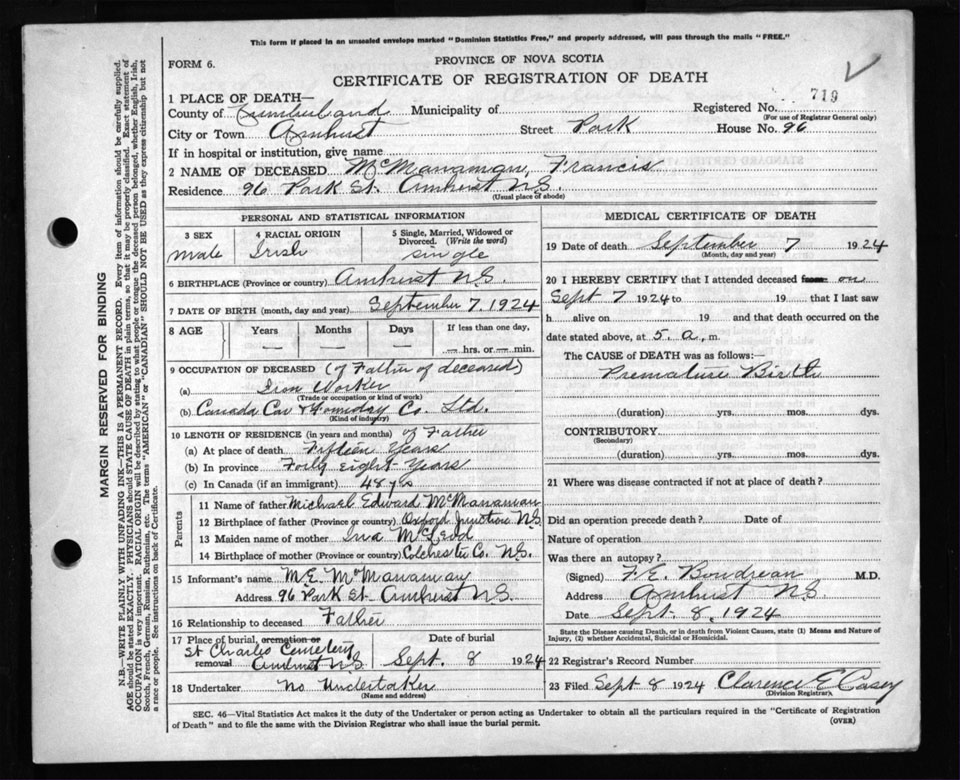 This form if placed in an unsealed envelope marked "Dominion Statistics Free," and properly addressed, will pass through the mails "FREE."
FORM 6.
PROVINCE OF NOVA SCOTIA
CERTIFICATE OF REGISTRATION OF DEATH
1 PLACE OF DEATH—
County of Cumberland Municipality of
Registered No. 719
(For use of Registrar General only)
City or Town Amherst Street Park House No. 96
If in hospital or institution, give name
2 NAME OF DECEASED McManaman, Francis
Residence 96 Park St. Amherst N.S.
(Usual place of abode)
PERSONAL AND STATISTICAL INFORMATION
3 SEX
male
4 RACIAL ORIGIN
Irish
5 Single, Married, Widowed or Divorced. (Write the word)
single
6 BIRTHPLACE (Province or country) Amherst N.S.
7 DATE OF BIRTH (month, day and year) September 7, 1924
8 AGE Years Months Days If less than one day,
— — — — hrs. or — min.
9 OCCUPATION OF DECEASED (of Father of deceased)
(a) Iron Worker
(Trade or occupation or kind of work)
(b) Canada Car & Foundry Co. Ltd.
(Kind of industry)
10 LENGTH OF RESIDENCE (in years and months) of Father
(a) At place of death Fifteen Years
(b) In province Forty Eight Years
(c) In Canada (if an immigrant) 48 yrs
Parents
11 Name of father Michael Edward McManaman
12 Birthplace of father (Province or country) Oxford Junction N.S.
13 Maiden name of mother McLeod
14 Birthplace of mother (Province or country) Colchester Co. N.S.
15 Informant's name M.E. McManaman
Address 96 Park St. Amherst N.S.
16 Relationship to deceased Father
17 Place of burial, cremation or removal
St Charles Cemetery
Amherst N.S.
Date of burial
Sept. 8 1924
18 Undertaker No Undertaker
(Name and address)
MEDICAL CERTIFICATE OF DEATH
19 Date of death September 7 1924
(Month, day and year)
20 I HEREBY CERTIFY that I attended deceased from on
Sept 7 1924 to 19 that I last saw
h alive on 19 and that death occurred on
date stated above, at 5. a, m.
The CAUSE OF DEATH was as follows:—
Premature Birth
(duration) yrs. mos. dys.
CONTRIBUTORY
(Secondary)
(duration) yrs. mos. dys.
21 Where was disease contracted if not at place of death?
Did an operation precede death? Date of
Nature of operation
Was there an autopsy?
(Signed) F.E. Boudreau M.D.
Address Amherst N.S.
Date Sept. 8, 1924
State the Disease causing Death, or in death from Violent Causes, state (1) Means and Nature of Injury, (2) whether Accidental, Suicidal or Homicidal.
22 Registrar's Record Number
23 Filed Sept 8 1924 Clarence E Casey
(Division Registrar).
SEC. 46—Vital Statistics Act makes it the duty of the Undertaker or person acting as Undertaker to obtain all the particulars required in the "Certificate of Registration of Death" and to file the same with the Division Registrar who shall issue the burial permit.
(OVER)
MARGIN RESERVED FOR BINDING
N.B.—WRITE PLAINLY WITH UNFADING INK—THIS IS A PERMANENT RECORD. Every item of information should be carefully supplied.
AGE should be stated EXACTLY. PHYSICIANS should STATE CAUSE OF DEATH in plain terms, so that it may be properly classified. Exact statement of
OCCUPATION is very important. RACIAL ORIGIN will be described by stating to what people or tongue the deceased person belonged, whether English, Irish,
Scotch, French, German, Russian, Ruthenian, etc. The terms "AMERICAN" or "CANADIAN" SHOULD NOT BE USED as they express citizenship but not
a race or people. See instructions on back of Certificate.